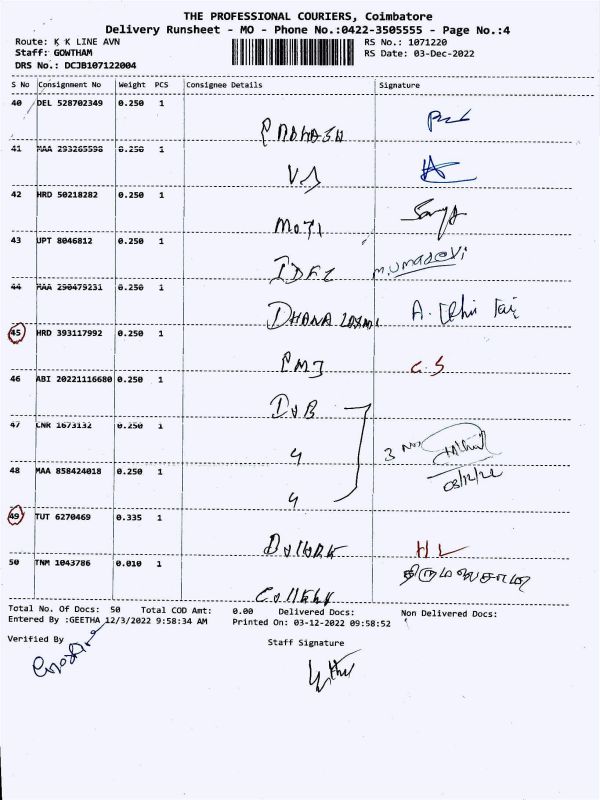 THE PROFESSIONAL COURIERS, Coimbatore
Delivery Runsheet - MO - Phone No.:0422-3505555 - Page No.:4
Route: K K LINE AVN
RS No.: 1071220
Staff: GOWTHAM
RS Date: 03-Dec-2022
DRS No.: DCJB107122004
S No Consignment No Weight PCS Consignee Details Signature
40 DEL 528702349 0.250 1
41 MAA 293265598 0.250 1
V J
42 HRD 50218282 0.250 1
MOJI
43 UPT 8046812 0.250 1
M.UMADEVI
44 MAA 290479231 0.250 1
DHANA LAXMI A.
45 HRD 393117992 0.250 1
PMJ C S
46 ABI 20221116680 0.250 1
47 CNR 1673132 0.250 1
3 Nos
48 MAA 858424018 0.250 1
03/12/22
49 TUT 6270469 0.335 1
H L
50 TNM 1043786 0.010 1
Total No. Of Docs: 50 Total COD Amt: 0.00 Delivered Docs: Non Delivered Docs:
Entered By :GEETHA 12/3/2022 9:58:34 AM Printed On: 03-12-2022 09:58:52
Verified By Staff Signature